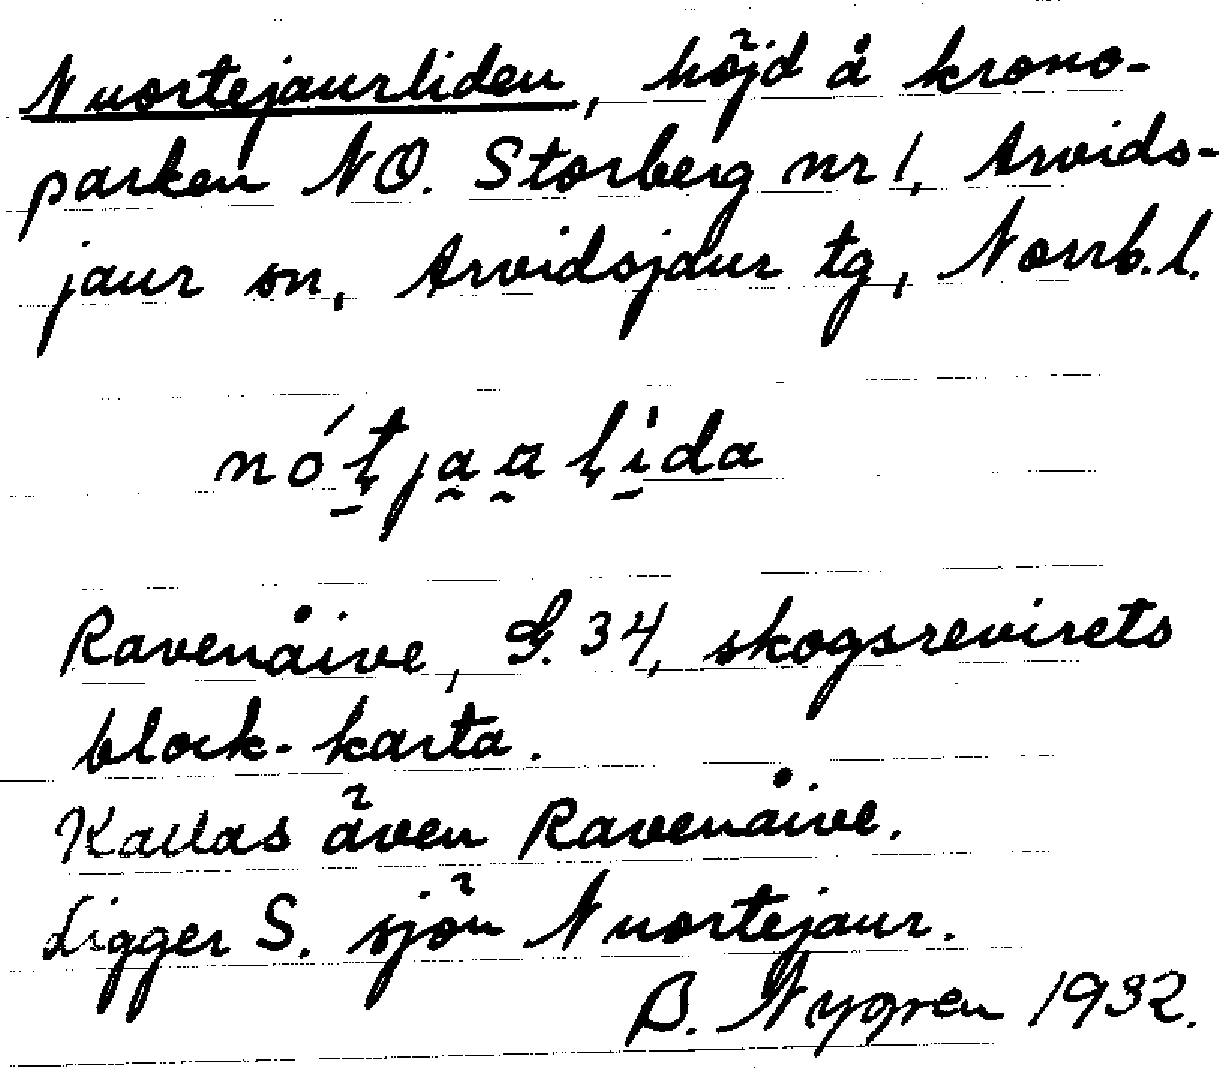 Nuortejaurliden, höjd å krono-
parken NO. Storberg nr 1, Arvids-
jaur sn, Arvidsjaur tg, Norrb. l.
Ravenåive, G. 34, skogsrevirets
block-karta.
Kallas även Ravenåive.
Ligger S. sjön Nuortejaur.
B. Nygren 1932.